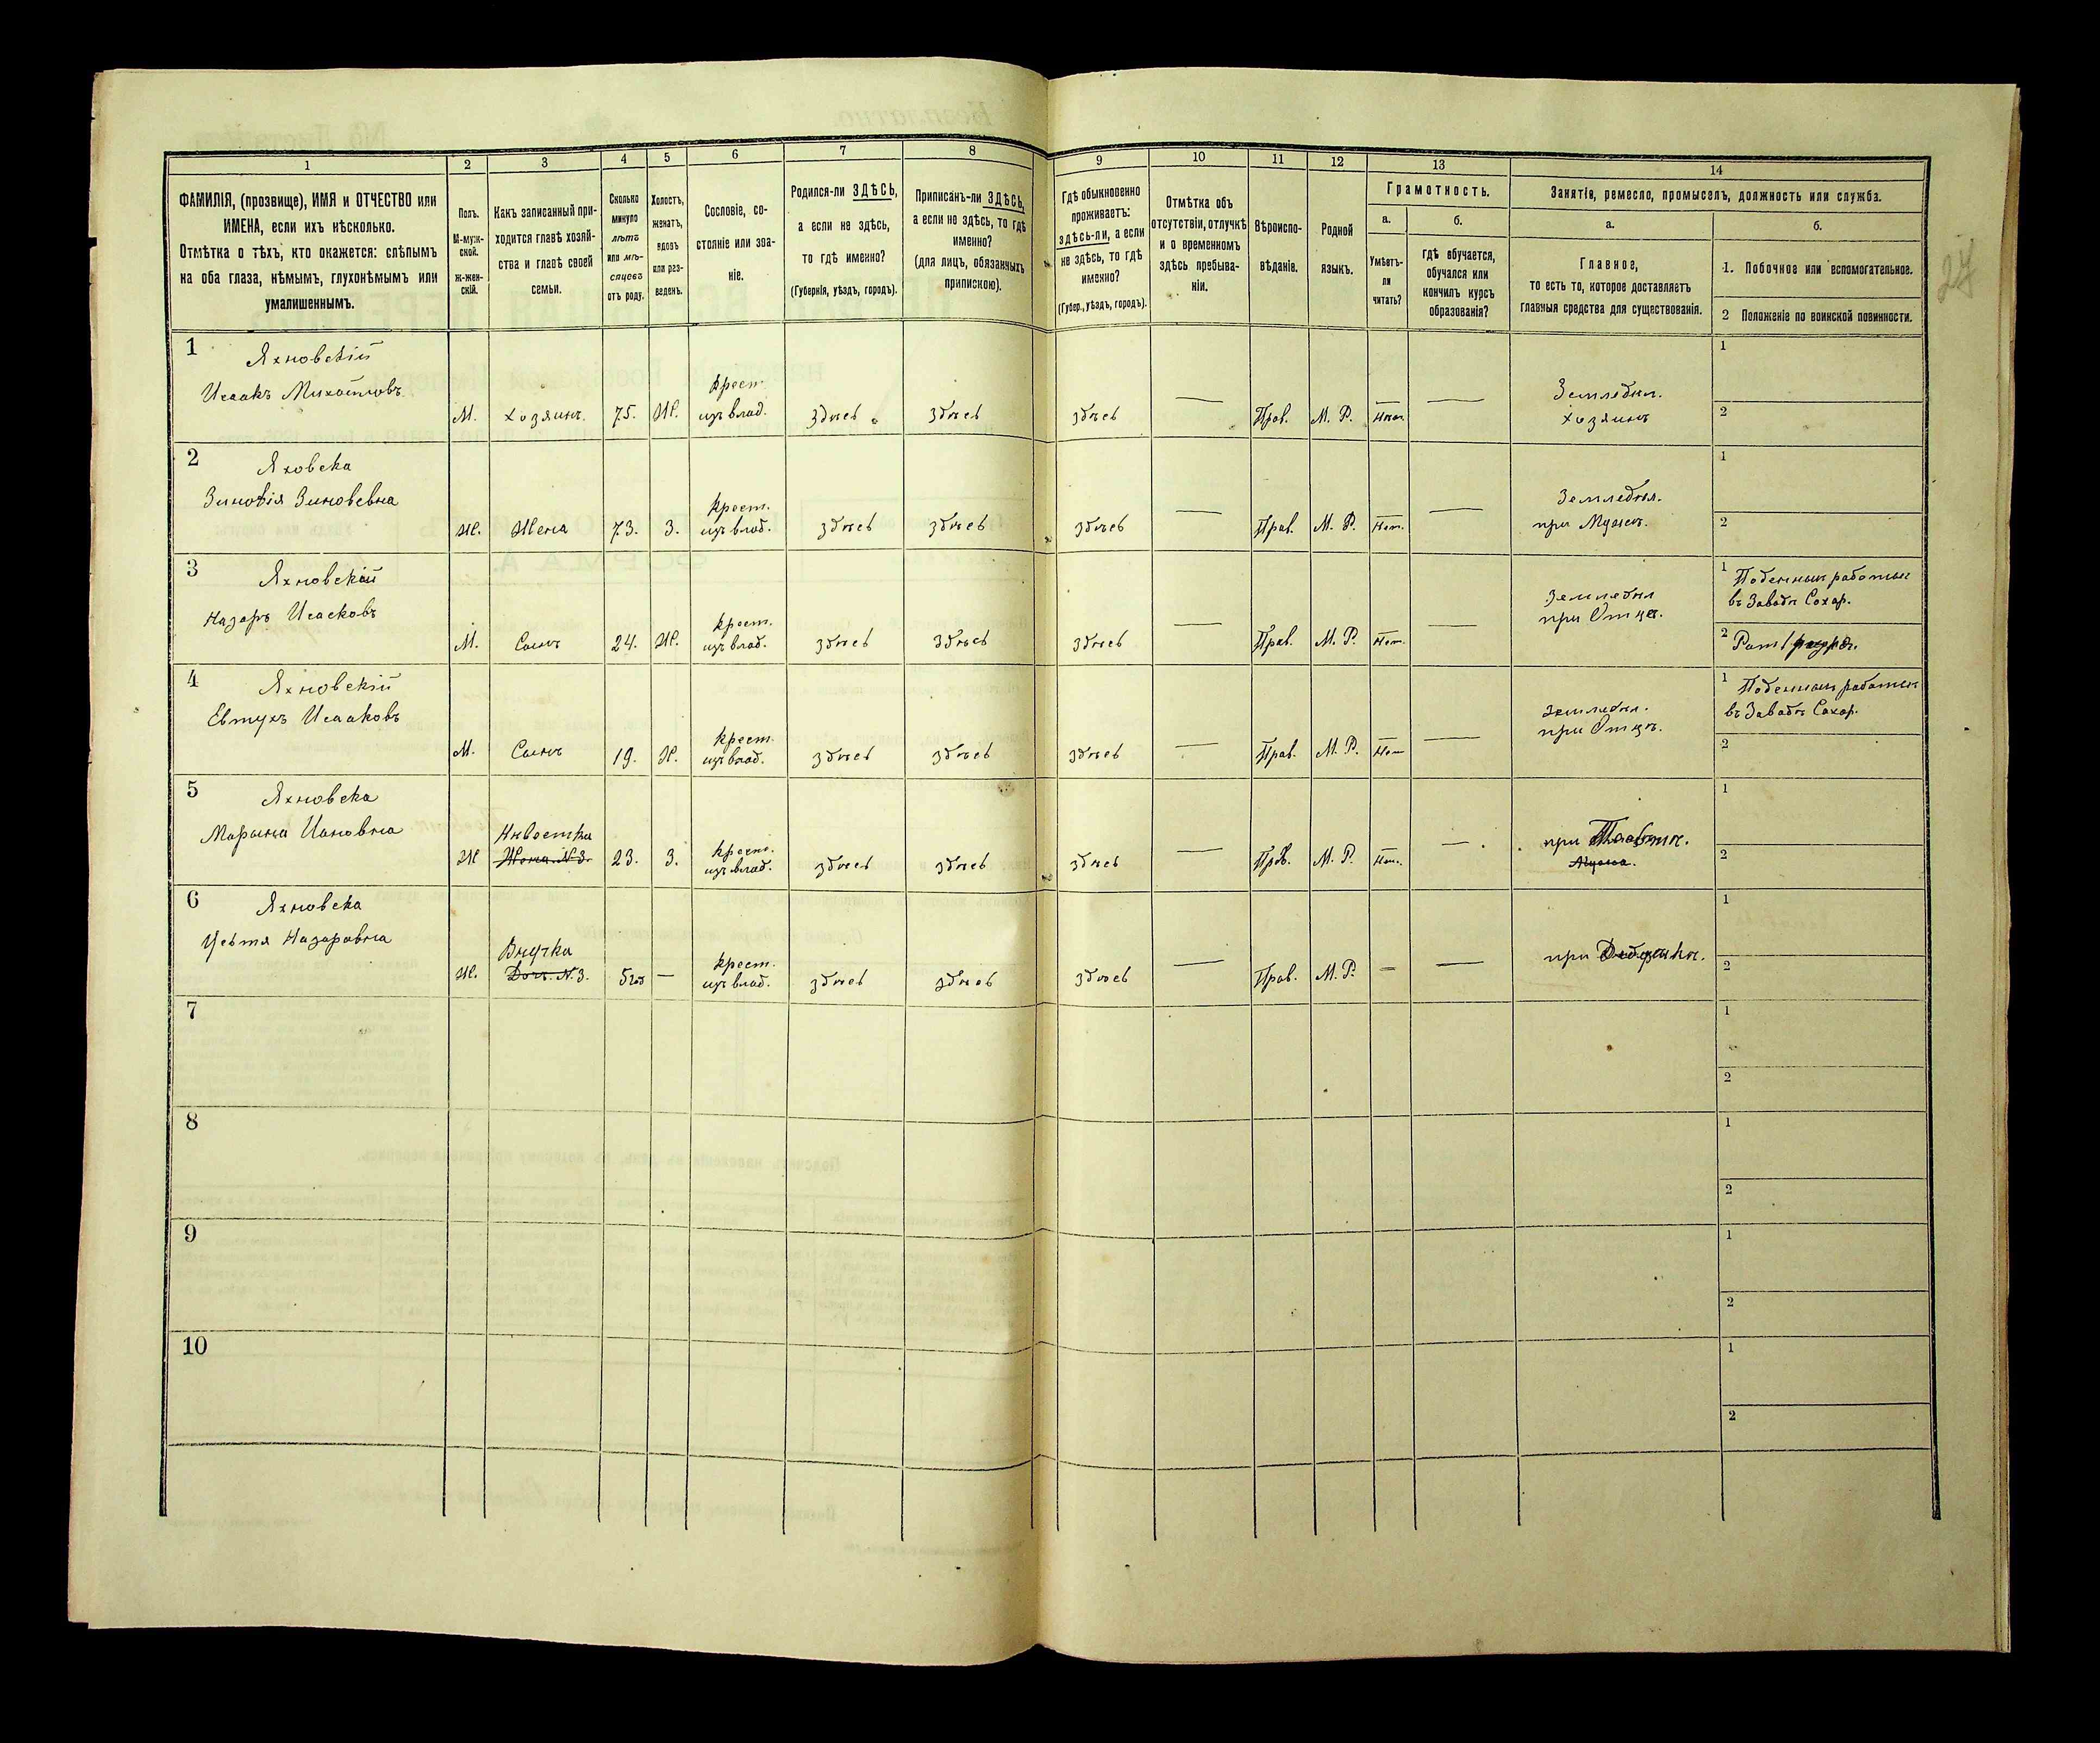 1 2 3 4 5 6 7 8 9 10 11 12 13 14
ФАМИЛІЯ, (прозвище), ИМЯ и ОТЧЕСТВО или
ИМЕНА, если ихъ нѣсколько.
Отмѣтка о тѣхъ, кто окажется: слѣпымъ
на оба глаза, нѣмымъ, глухонѣмымъ или
умалишеннымъ.
Полъ.
М-муж-
ской.
Ж-жен-
скій.
Какъ записанный при-
ходится главѣ хозяй-
ства и главѣ своей
семьи.
Сколько
минуло
лѣтъ
или мѣ-
сяцевъ
отъ роду.
Холостъ,
женатъ,
вдовъ
или раз-
веденъ.
Сословіе, со-
стояніе или зва-
ніе.
Родился-ли ЗДѢСЬ,
а если не здѣсь,
то гдѣ именно?
(Губернія, уѣздъ, городъ).
Приписанъ-ли ЗДѢСЬ,
а если не здѣсь, то гдѣ
именно?
(для лицъ, обязанныхъ
припискою).
Гдѣ обыкновенно
проживаетъ:
здѣсь-ли, а если
не здѣсь, то гдѣ
именно?
(Губер., уѣздъ, городъ).
Отмѣтка объ
отсутствіи, отлучкѣ
и о временномъ
здѣсь пребыва-
ніи.
Вѣроиспо-
вѣданіе.
Родной
языкъ.
Грамотность.
а.
Умѣетъ-
ли
читать?
б.
гдѣ обучается,
обучался или
кончилъ курсъ
образованія?
Занятія, ремесло, промыселъ, должность или служба.
а.
Главное,
то есть то, которое доставляетъ
главныя средства для существованія.
б.
1. Побочное или вспомогательное.
2 Положеніе по воинской повинности.
27
1 Яхновскій
Исаакъ Михайловъ
М. хозяинъ 75. Ж. крест.
изъ влад. здѣсь здѣсь здѣсь — Прав. М. Р. —
Земледѣл.
хозяинъ
1
2
2 Яховска
Зиновія Зиновевна
Ж. Жена 73. З. крест.
изъ влад. здѣсь здѣсь здѣсь — Прав. М. Р. Нет. —
Земледѣл.
при Мужѣ.
1
2
3 Яхновскій
Назаръ Исааковъ
М. Сынъ 24. Ж. крест.
изъ влад. здѣсь здѣсь здѣсь — Прав. М. Р. Нет. —
Земледѣл
при Отцѣ.
1 Поденныи работн
въ Заводѣ Сахар.
2
4 Яхновскій
Евтухъ Исааковъ
М. Сынъ 19. Х. крест.
изъ влад. здѣсь здѣсь здѣсь — Прав. М. Р. Нет —
Земледѣл.
при Отцѣ.
1 Поденныи работн
въ Заводѣ Сахар.
2
5 Яхновска
Марына Ивановна
Невестка
Ж Жена. N 3. 23. З. крест.
изъ влад. здѣсь здѣсь здѣсь — Прав. М. Р. Нет. —
при
Мужа.
1
2
6 Яхновска
Устя Назаровна
Внучка
Ж. Доч. N. 3. 5 — крест.
изъ влад. здѣсь здѣсь здѣсь — Прав. М. Р. — —
при
1
2
7
1
2
8
1
2
9
1
2
10
1
2